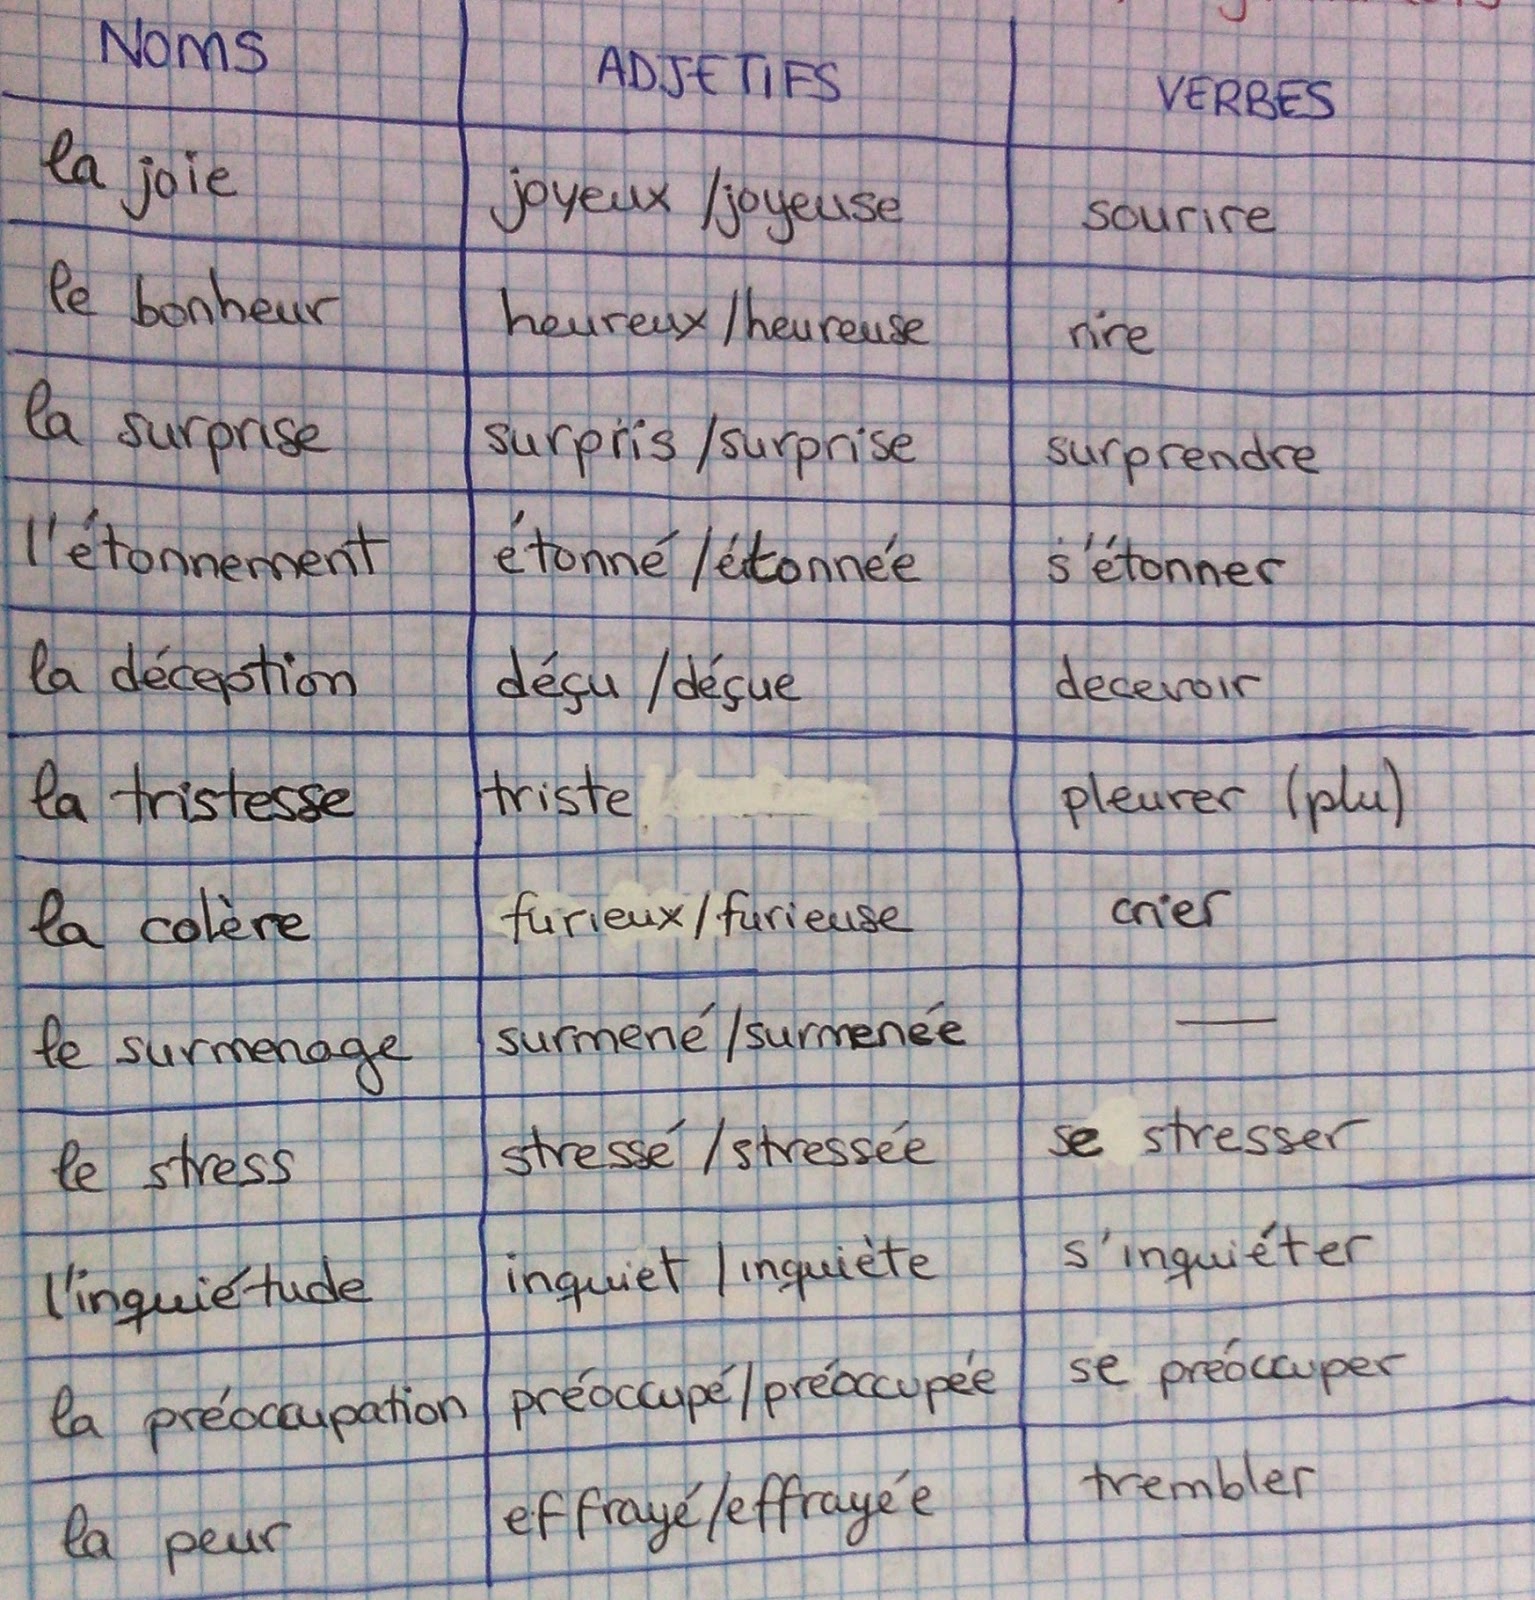 NOMS ADJETIFS VERBES
la joie joyeux/joyeuse sourire
le bonheur heureux/heureuse rire
la surprise surpris/surprise surprendre
l'étonnement étonné/étonnée s'étonner
la déception déçu/déçue decevoir
la tristesse triste pleurer (plu)
la colère furieux/furieuse crier
le surmenage surmené/surmenée —
le stress stressé/stressée se stresser
l'inquiétude inquiet/inquiète s'inquiéter
la préoccupation préoccupé/préoccupée se préoccuper
la peur effrayé/effrayée trembler